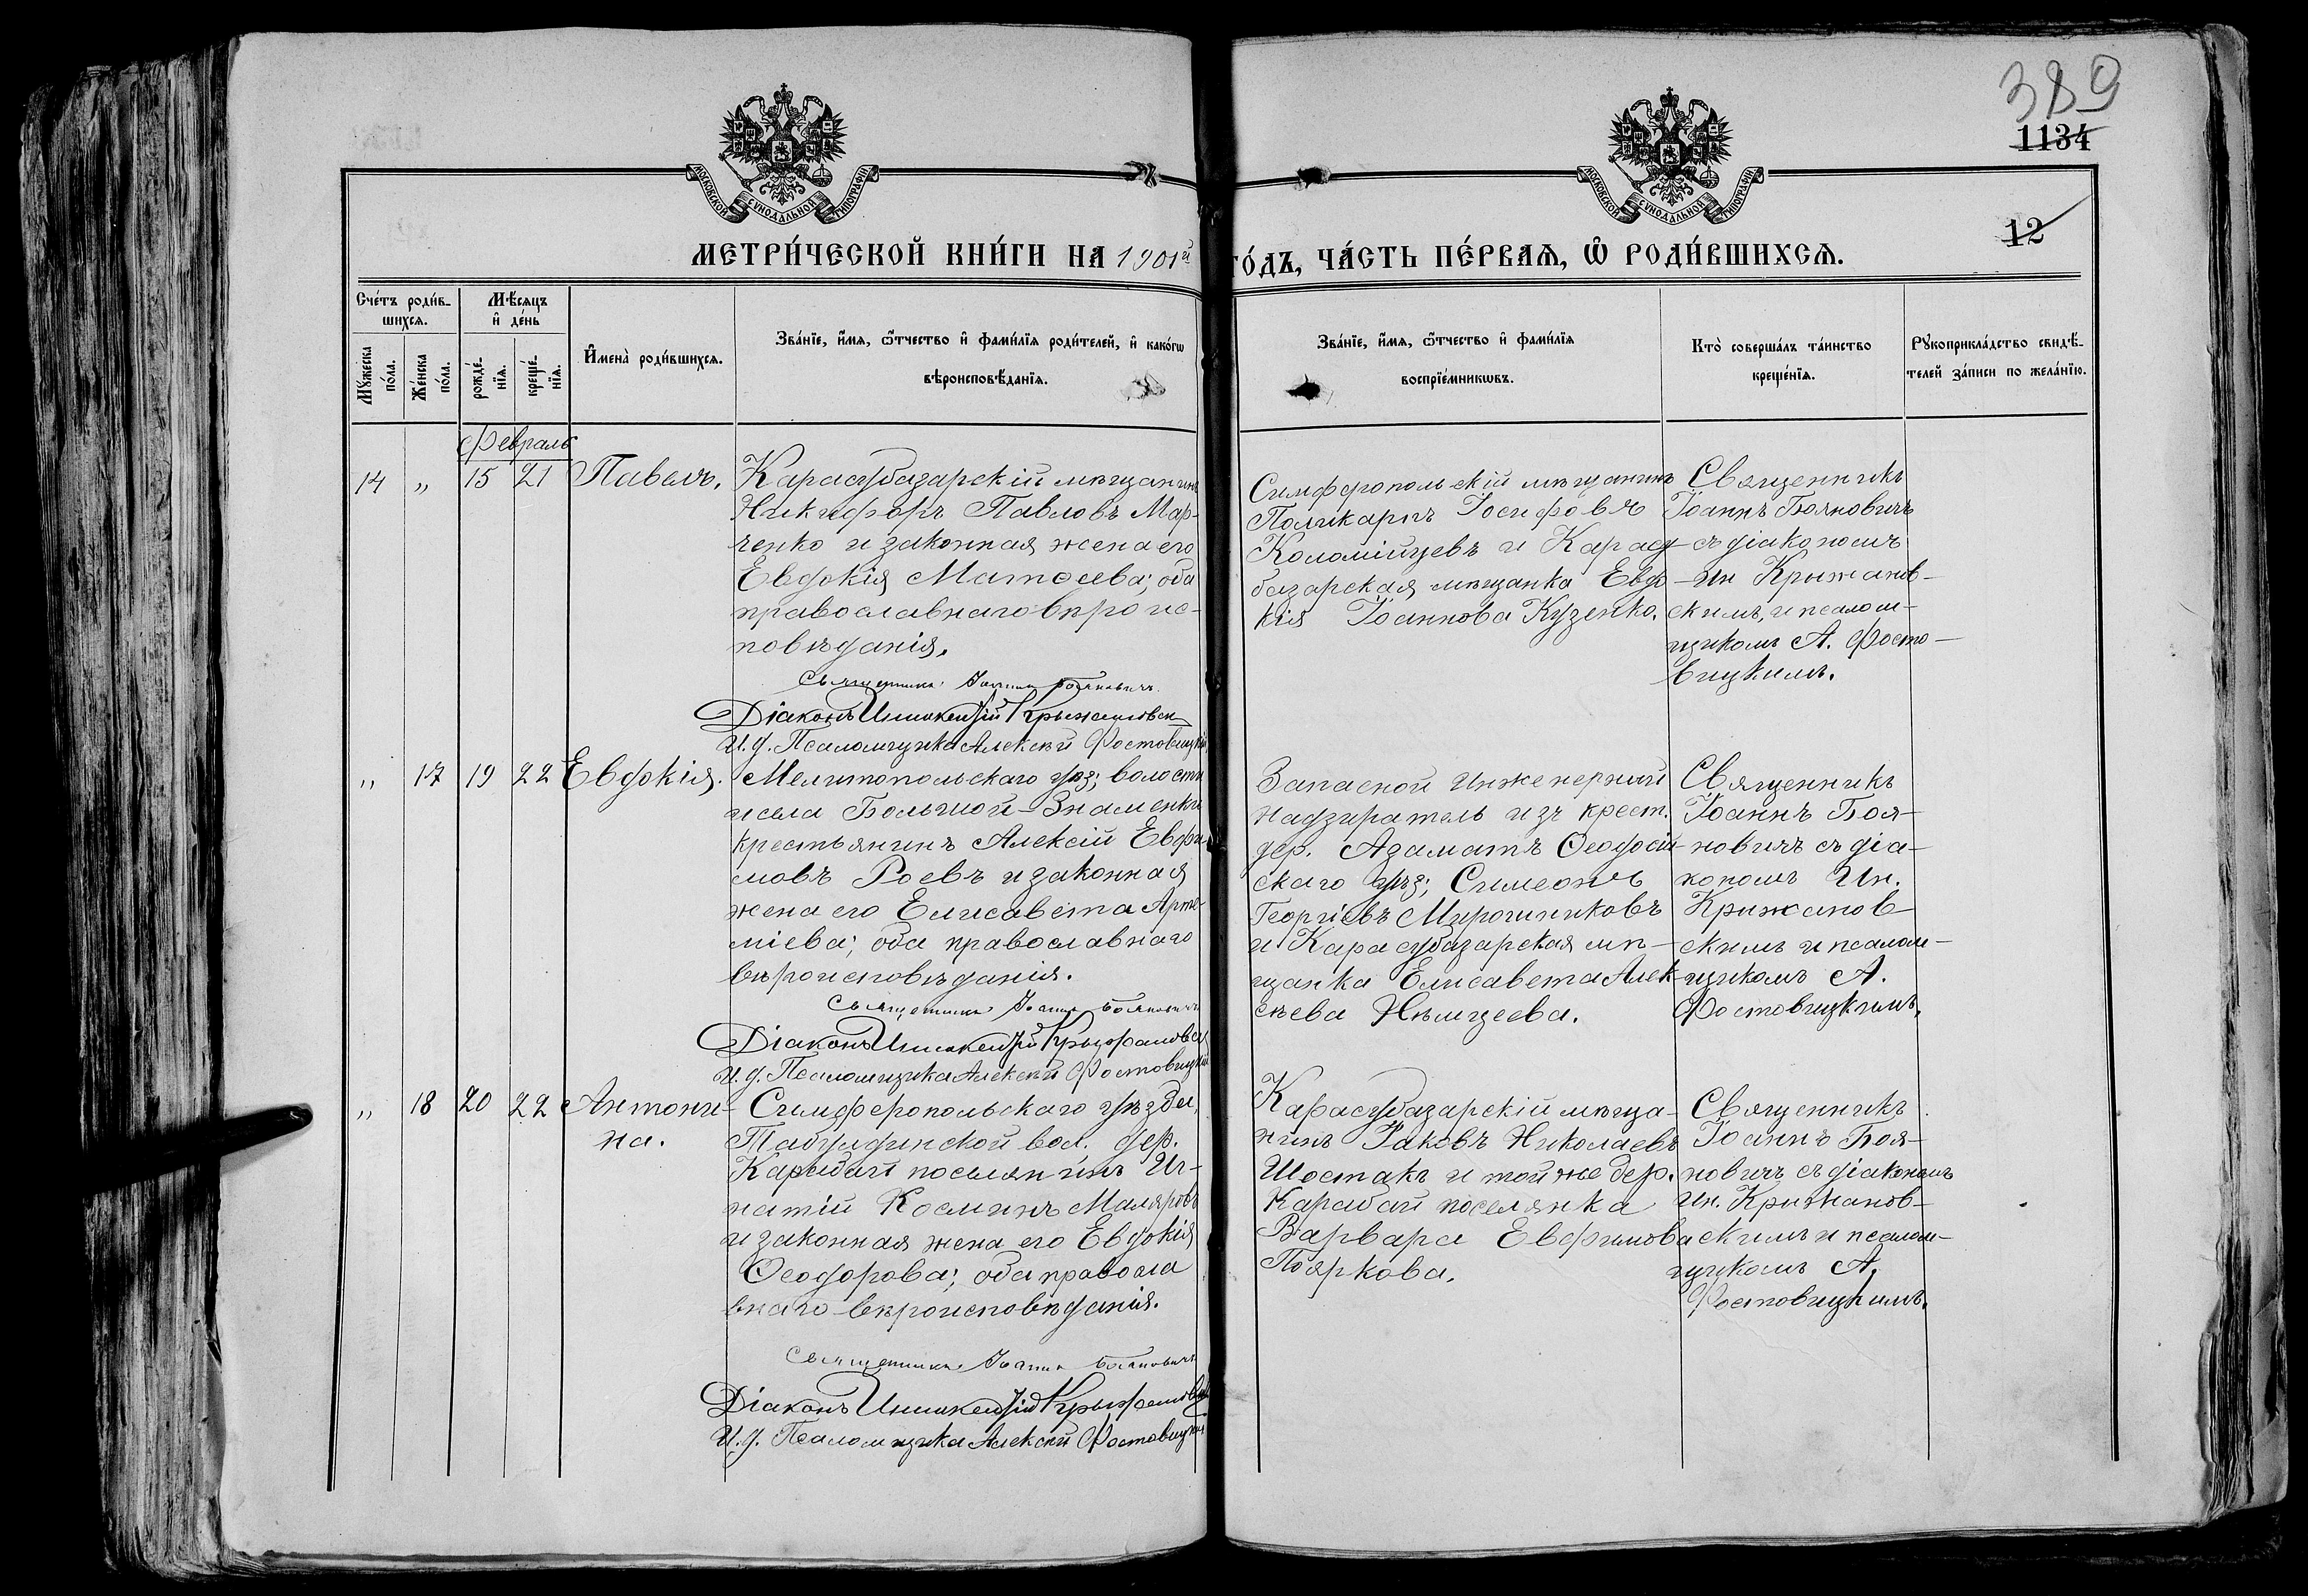 389
1134
12
МОСКОВСКОЙ СѴНОДАЛЬНОЙ ТИПОГРАФІИ
МОСКОВСКОЙ СѴНОДАЛЬНОЙ ТИПОГРАФІИ
МЕТРИ́ЧЕСКОЙ КНИ́ГИ НА 1901й
ГО́ДЪ, ЧА́СТЬ ПЕ́РВАѦ, Ѡ РОДИ́ВШИХСѦ.
Сче́тъ роди́в-
шихсѧ.
Мѣ́сѧцъ
и҆ де́нь
Мꙋ́жеска
по́ла.
Же́нска
по́ла.
рожде́-
нїѧ.
креще́-
нїѧ.
И҆мена̀ роди́вшихсѧ.
Зва́нїе, и҆́мѧ, ѻ҆́тчество и҆ фами́лїѧ роди́телей, и҆ како́гѡ
вѣроисповѣ́данїѧ.
Зва́нїе, и҆́мѧ, ѻ҆́тчество и҆ фами́лїѧ
воспрїе́мникѡвъ.
Кто̀ соверша́лъ та́инство
креще́нїѧ.
Рꙋкоприкла́дство свидѣ́-
телей за́писи по жела́нїю.
Февраль
14 „ 15 21 Павелъ.
Карасубазарскій мѣщанинъ
Никифоръ Павловъ Мар-
ченко и законная жена его
Евдокія Матѳеева; оба
православнаго вѣроис-
повѣданія.
Священникъ Іоаннъ Бояновичъ
Діаконъ Иннокентій Крыжановск
И. д. Псаломщика Алексѣй Фостовицкій
Симферопольскій мѣщанинъ
Поликарпъ Іосифовъ
Коломійцевъ и Карасу-
базарская мѣщанка Евдо-
кія Іоаннова Кузенко.
Священникъ
Іоаннъ Бояновичъ
съ діакономъ
Ин Крыжанов-
скимъ, и псалом-
щикомъ А. Фосто-
вицкимъ.
„ 17 19 22 Евдокія.
Мелитопольскаго уѣз; волости
и села Большой-Знаменки
крестьянинъ Алексій Евфи
мовъ Роевъ и законная
жена его Елисавета Арте-
міева; оба православнаго
вѣроисповѣданія.
Священникъ Іоаннъ Бояновичъ
Діаконъ Иннокентій Крыжановск
И. д. Псаломщика Алексѣй Фостовицкій
Запасной инженерный
надзиратель изъ крест.
дер. Азаматъ Ѳеодосій-
скаго уѣз; Симеонъ
Георгіевъ Мирошниковъ
и Карасубазарская мѣ-
щанка Елисавета Алек-
сѣева Нѣмцеева.
Священникъ
Іоаннъ Боя-
новичъ съ діа-
кономъ Ин.
Крыжанов-
скимъ и псалом-
щикомъ А.
Фостовицкимъ.
„ 18 20 22 Антони-
на.
Симферопольскаго уѣзда,
Табулдинской вол. дер.
Карабай поселянинъ Иг-
натій Косминъ Маляровъ
и законная жена его Евдокія
Ѳеодорова; оба правосла
внаго вѣроисповѣданія.
Священникъ Іоаннъ Бояновичъ
Діаконъ Иннокентій Крыжановскій
И. д. Псаломщика Алексѣй Фостовицкій
Карасубазарскій мѣща-
нинъ Іаковъ Николаевъ
Шостакъ и той же дер.
Карабай поселянка
Варвара Евфимова
Пояркова.
Священникъ
Іоаннъ Боя-
новичъ съ діакономъ
Ин. Крыжанов-
скимъ и псалом-
щикомъ А.
Фостовицкимъ.